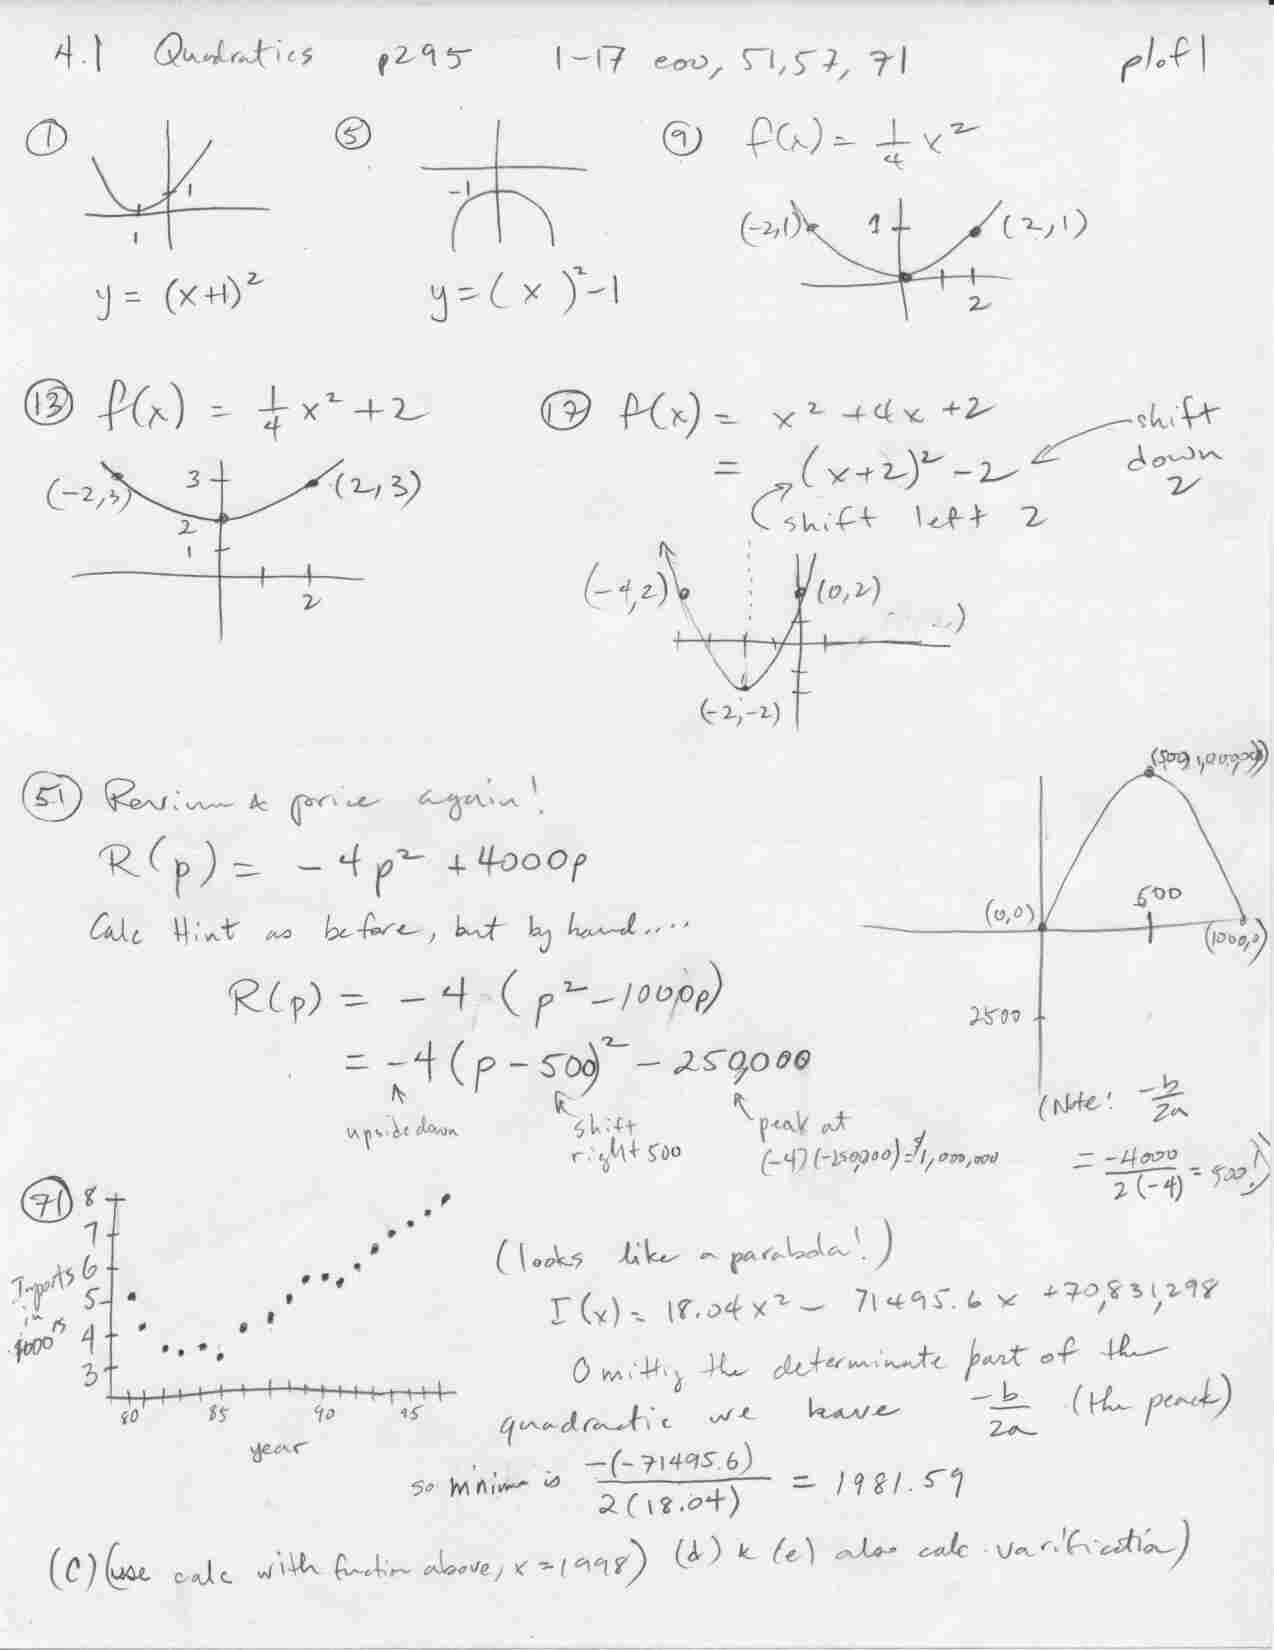 4.1 Quadratics p295 1-17 eoo, 51,57, 71 p1of1
① ⑤ ⑨ f(x) = 1/4 x²
1
-1
1
(-2,1) 1 (2,1)
2
y = (x+1)²
y = ( x )² -1
⑬ f(x) = 1/4 x² + 2
(-2,3) 3 (2,3)
2
1
2
⑰ f(x) = x² + 4x + 2
= (x+2)² - 2
shift down 2
shift left 2
(-4,2) (0,2)
(-2,-2)
51 price again!
R(p) = -4p² + 4000p
Calc Hint as before, but by hand....
R(p) = -4 (p² - 1000p)
= -4(p - 500)² - 250,000
upside down
shift
right 500
peak at
(-4)(-250,000) = $1,000,000
(500, 1,000,000)
(0,0) 500
(1000,0)
2500
(Note: -b/2a
= -4000/2(-4) = 500!)
71 8
7
6
5
4
3
Imports
in
$1000's
80 85 90 95
year
(looks like a parabola!)
I(x) = 18.04x² - 71495.6x + 70,831,298
Omittig the determinate part of the
quadractic we have -b/2a (the peack)
so minimum is -(-71495.6)/2(18.04) = 1981.59
(C) (use calc with function above, x = 1998) (d) & (e) also calc. varification)